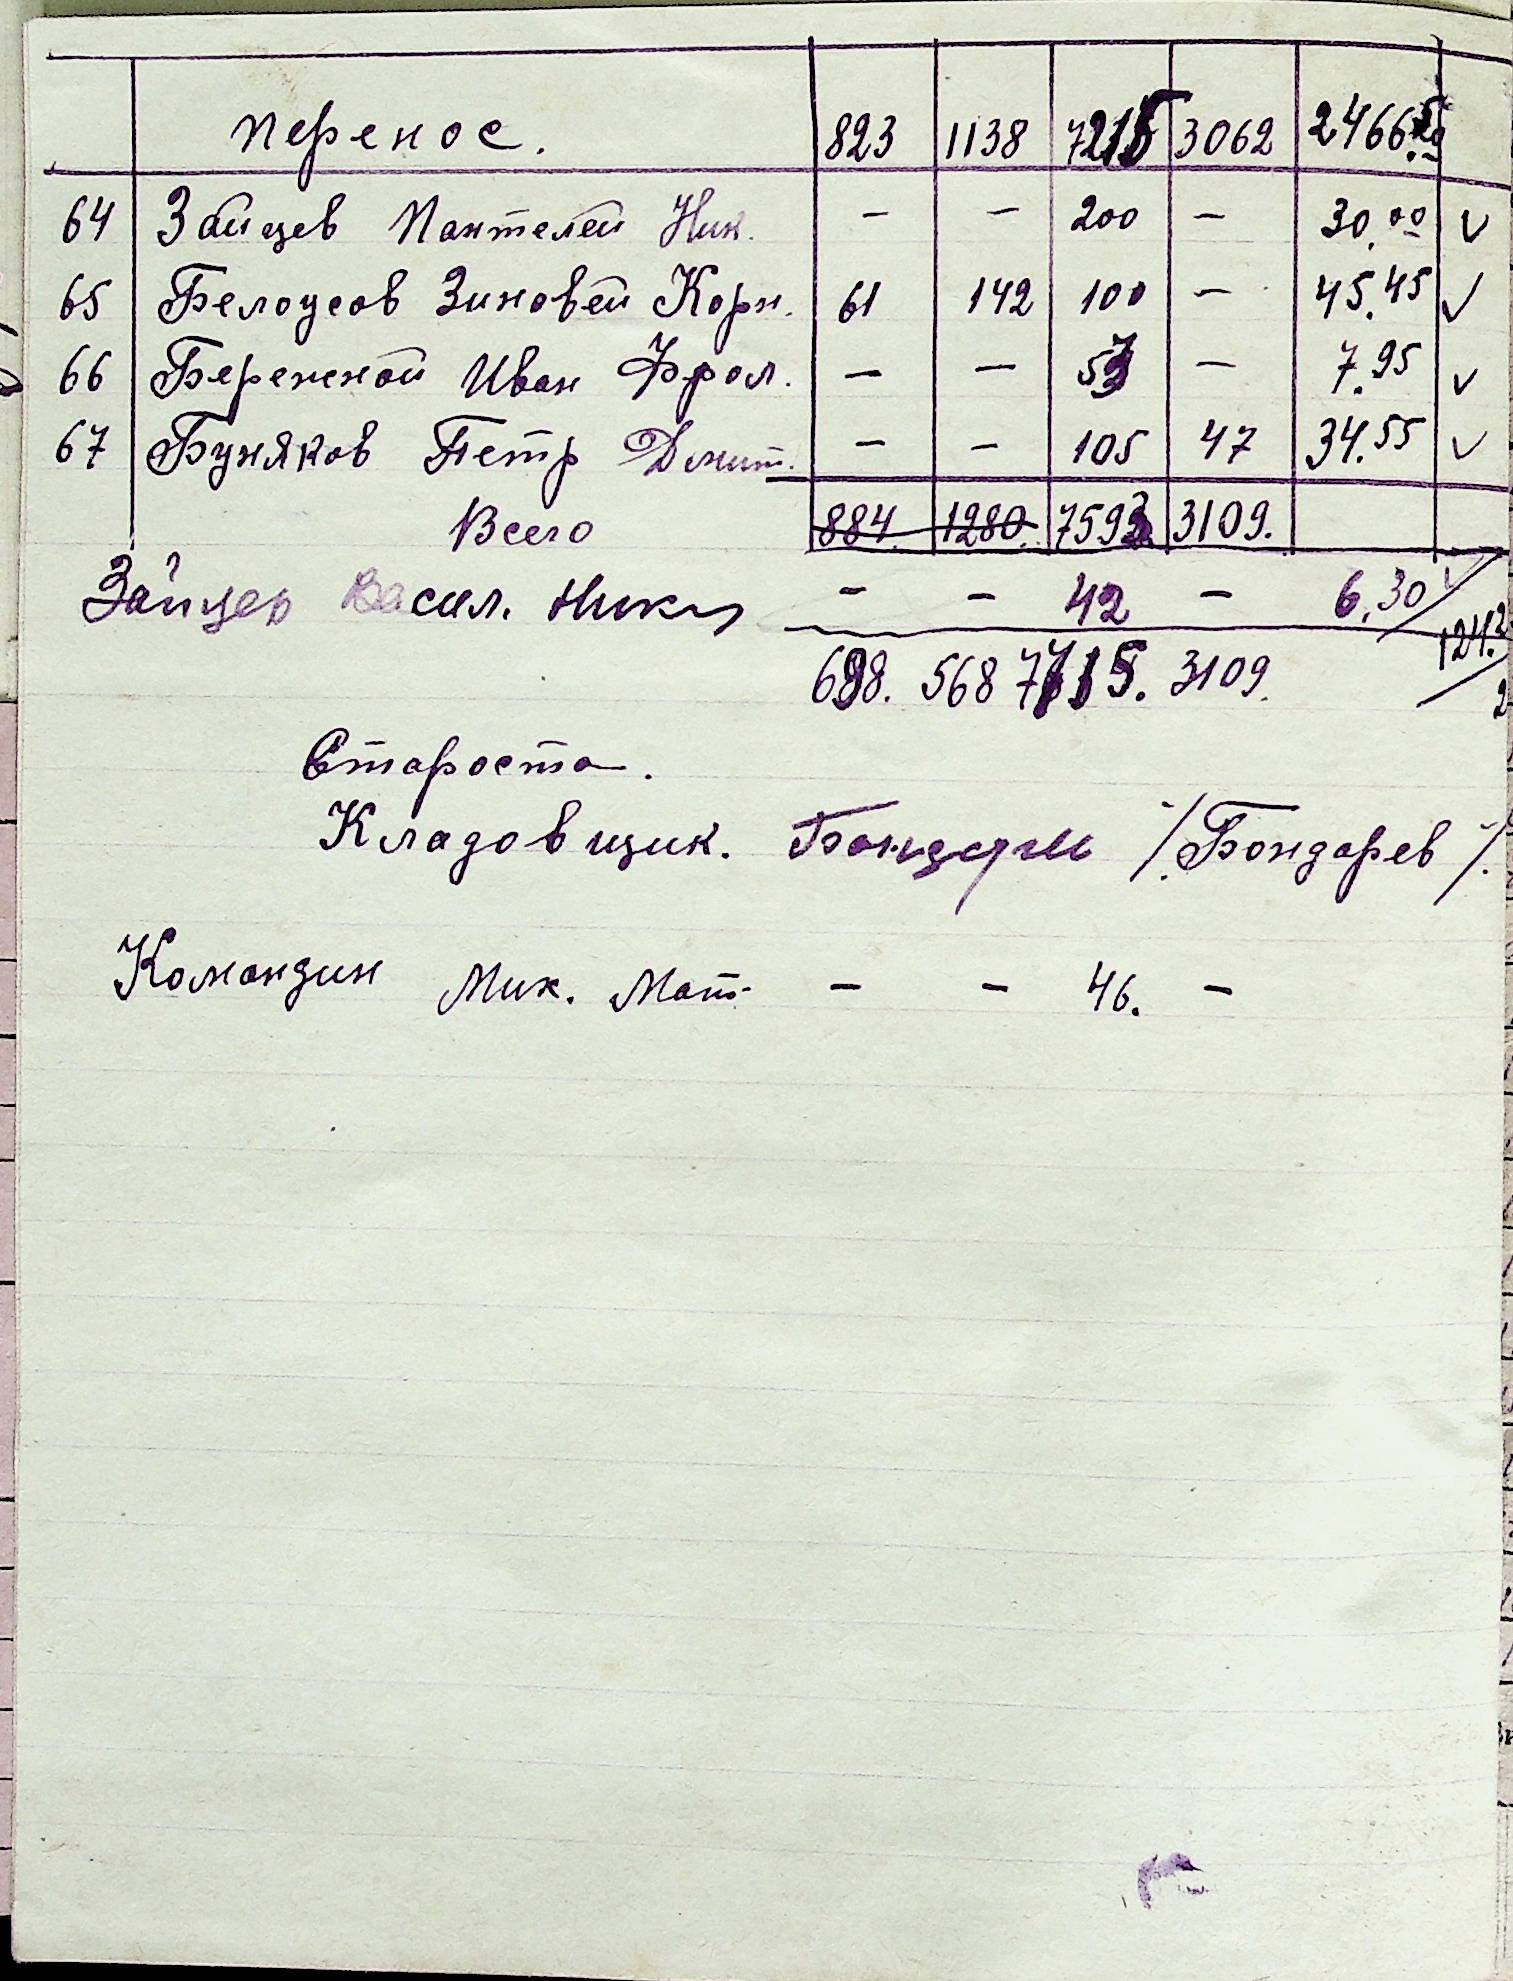 Перенос. 823 1138 7215 3062 2466
64 Зайцев Пантелей Ник. — — 200 — 30.00 v
65 Белоусов Зиновей Корн. 61 142 100 — 45.45 v
66 Бережной Иван Фрол. — — 53 — 7.95 v
67 Буняков Петр Дмит. — — 105 47 34.55 v
Всего 884. 1280. 7593 3109.
Зайцев Васил. Ник — — 42 — 6.30
698. 568 7715. 3109.
Староста.
Кладовщик. /Бондарев/.
Командин Мик. Мат. — — 46. —